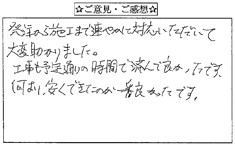 ☆ご意見・ご感想☆
発注から施工まで速やかに対応いただいて
大変助かりました。
工事も予定通りの時間で済んで良かったです。
何より、安くできたのが一番良かったです。